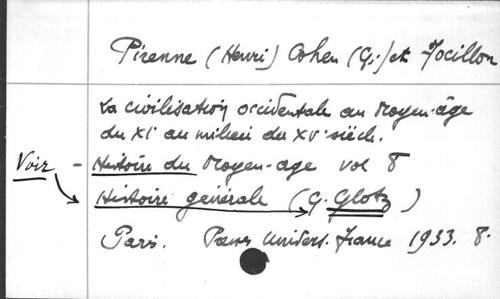 Pirenne (Henri) Cohen (G.) et Focillon
La civilisation occidentale au Moyen-âge
du XIe au milieu du XVe siècle.
Voir - Histoire du Moyen-age vol 8
Histoire générale (G. Glotz)
Paris. Presses Univers. France 1933. 8.